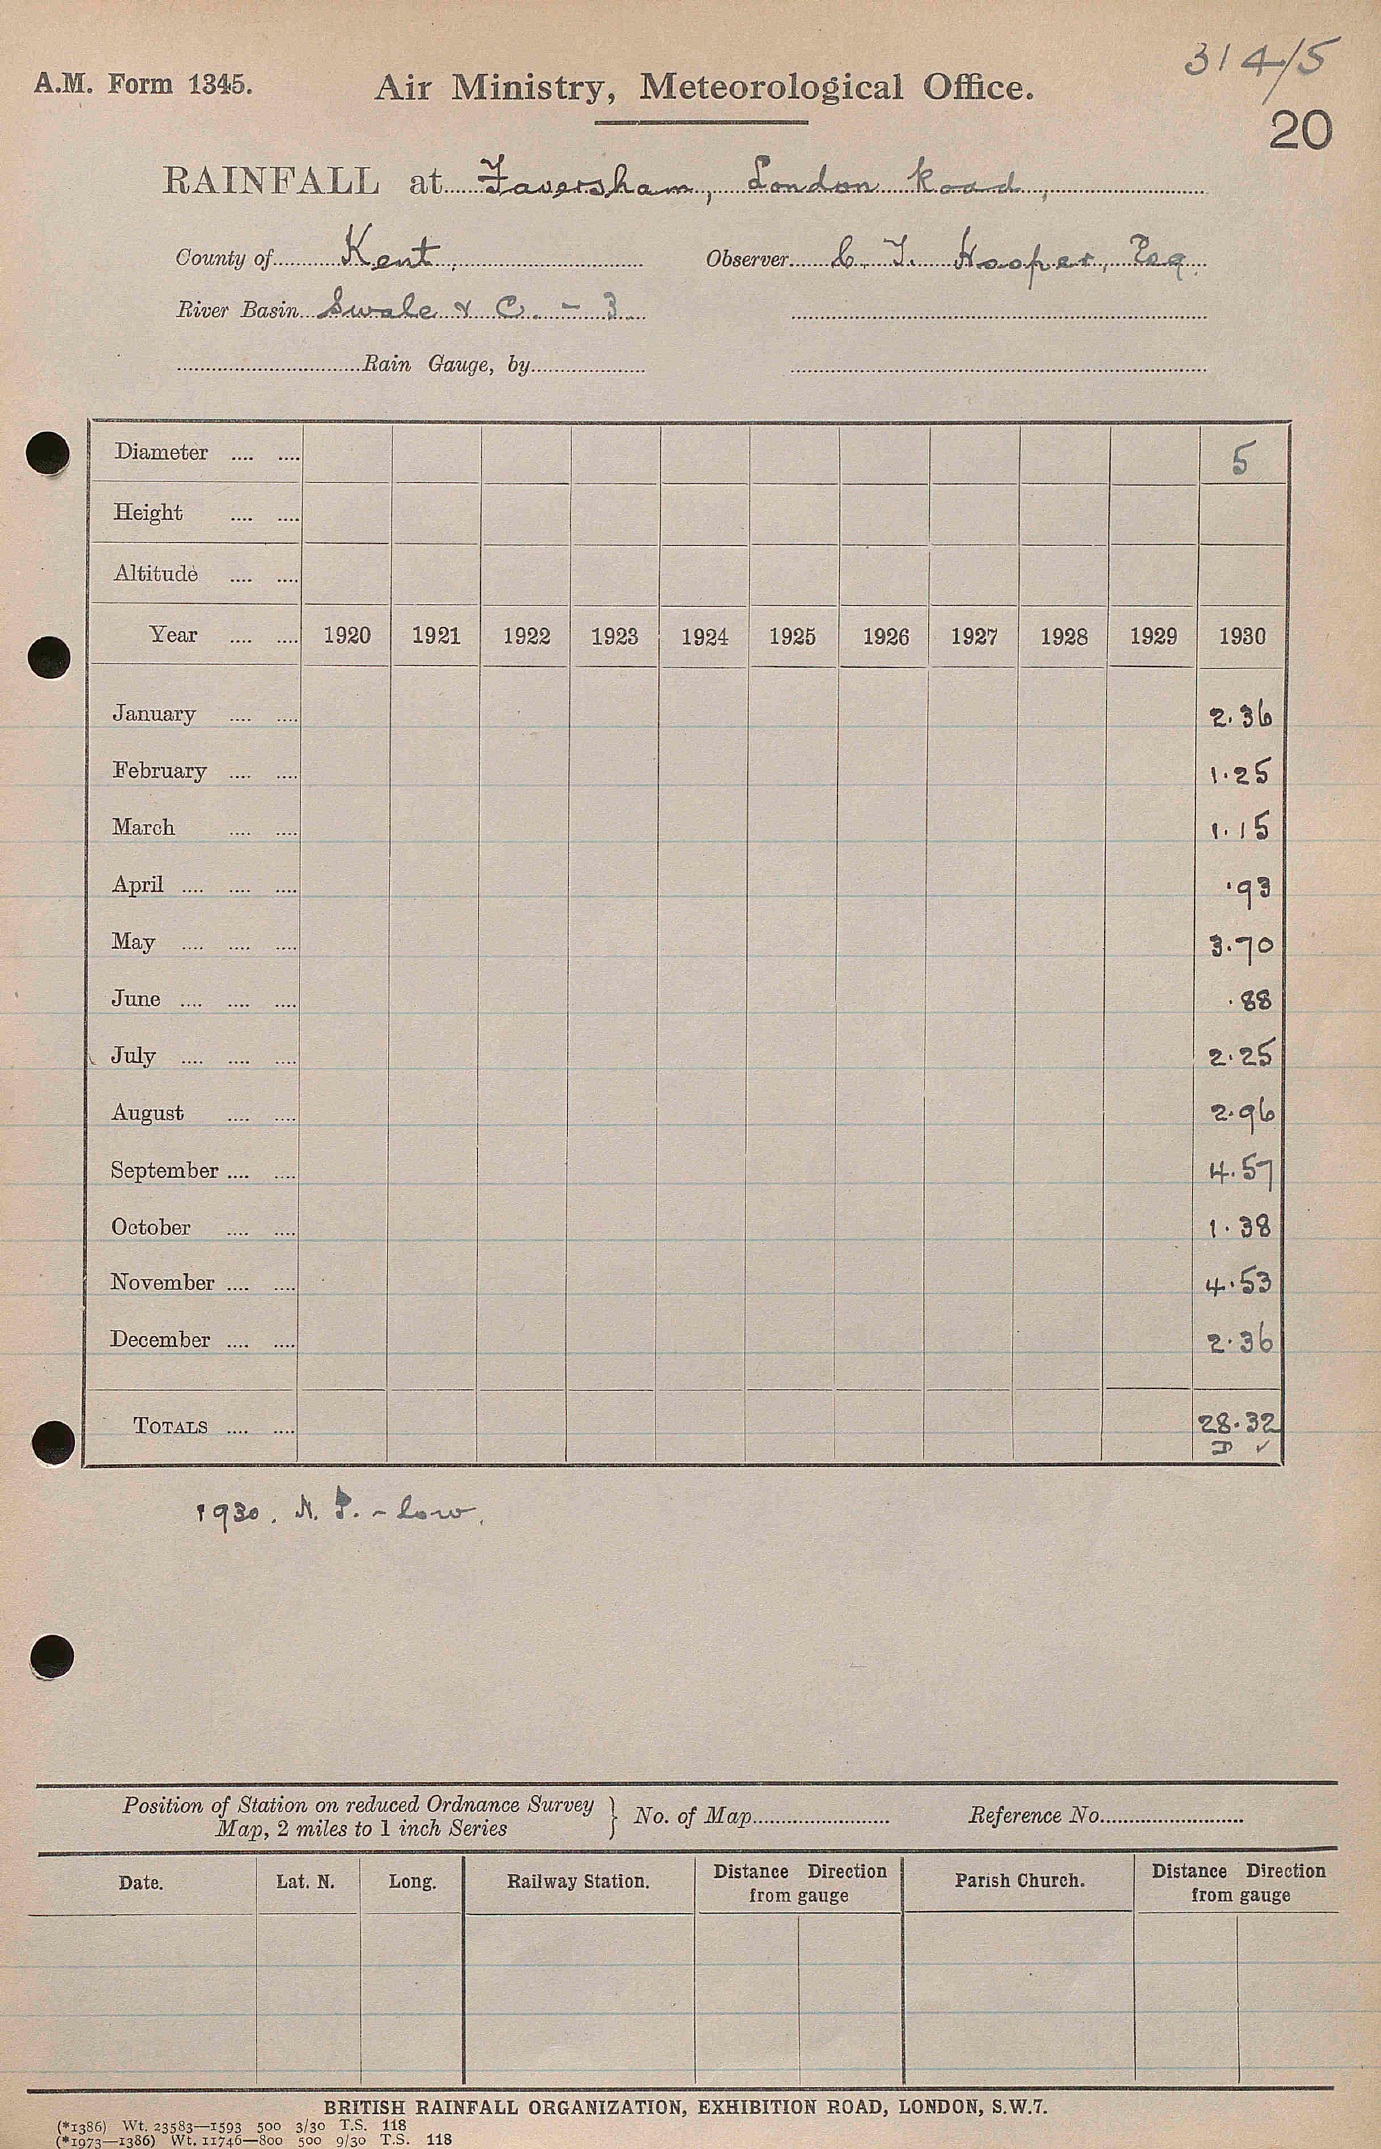 314/5
A.M. Form 1345. Air Ministry, Meteorological Office.
20
RAINFALL at Faversham, London Road,
County of Kent. Observer C. T. Hooper, Esq.
River Basin Swale & C. - 3
Rain Gauge, by
Diameter .... .... 5
Height .... ....
Altitude .... ....
Year .... .... 1920 1921 1922 1923 1924 1925 1926 1927 1928 1929 1930
January .... .... 2.36
February .... .... 1.25
March .... .... 1.15
April .... .... .... .93
May .... .... .... 3.70
June .... .... .... .88
July .... .... .... 2.25
August .... .... 2.96
September .... .... 4.57
October .... .... 1.38
November .... .... 4.53
December .... .... 2.36
TOTALS .... .... 28.32
✓
1930. N. P. - low.
Position of Station on reduced Ordnance Survey
Map, 2 miles to 1 inch Series } No. of Map Reference No.
Date. Lat. N. Long. Railway Station. Distance Direction from gauge Parish Church. Distance Direction from gauge
BRITISH RAINFALL ORGANIZATION, EXHIBITION ROAD, LONDON, S.W.7.
(*1386) Wt. 23583—1593 500 3/30 T.S. 118
(*1973—1386) Wt. 11746—800 500 9/30 T.S. 118